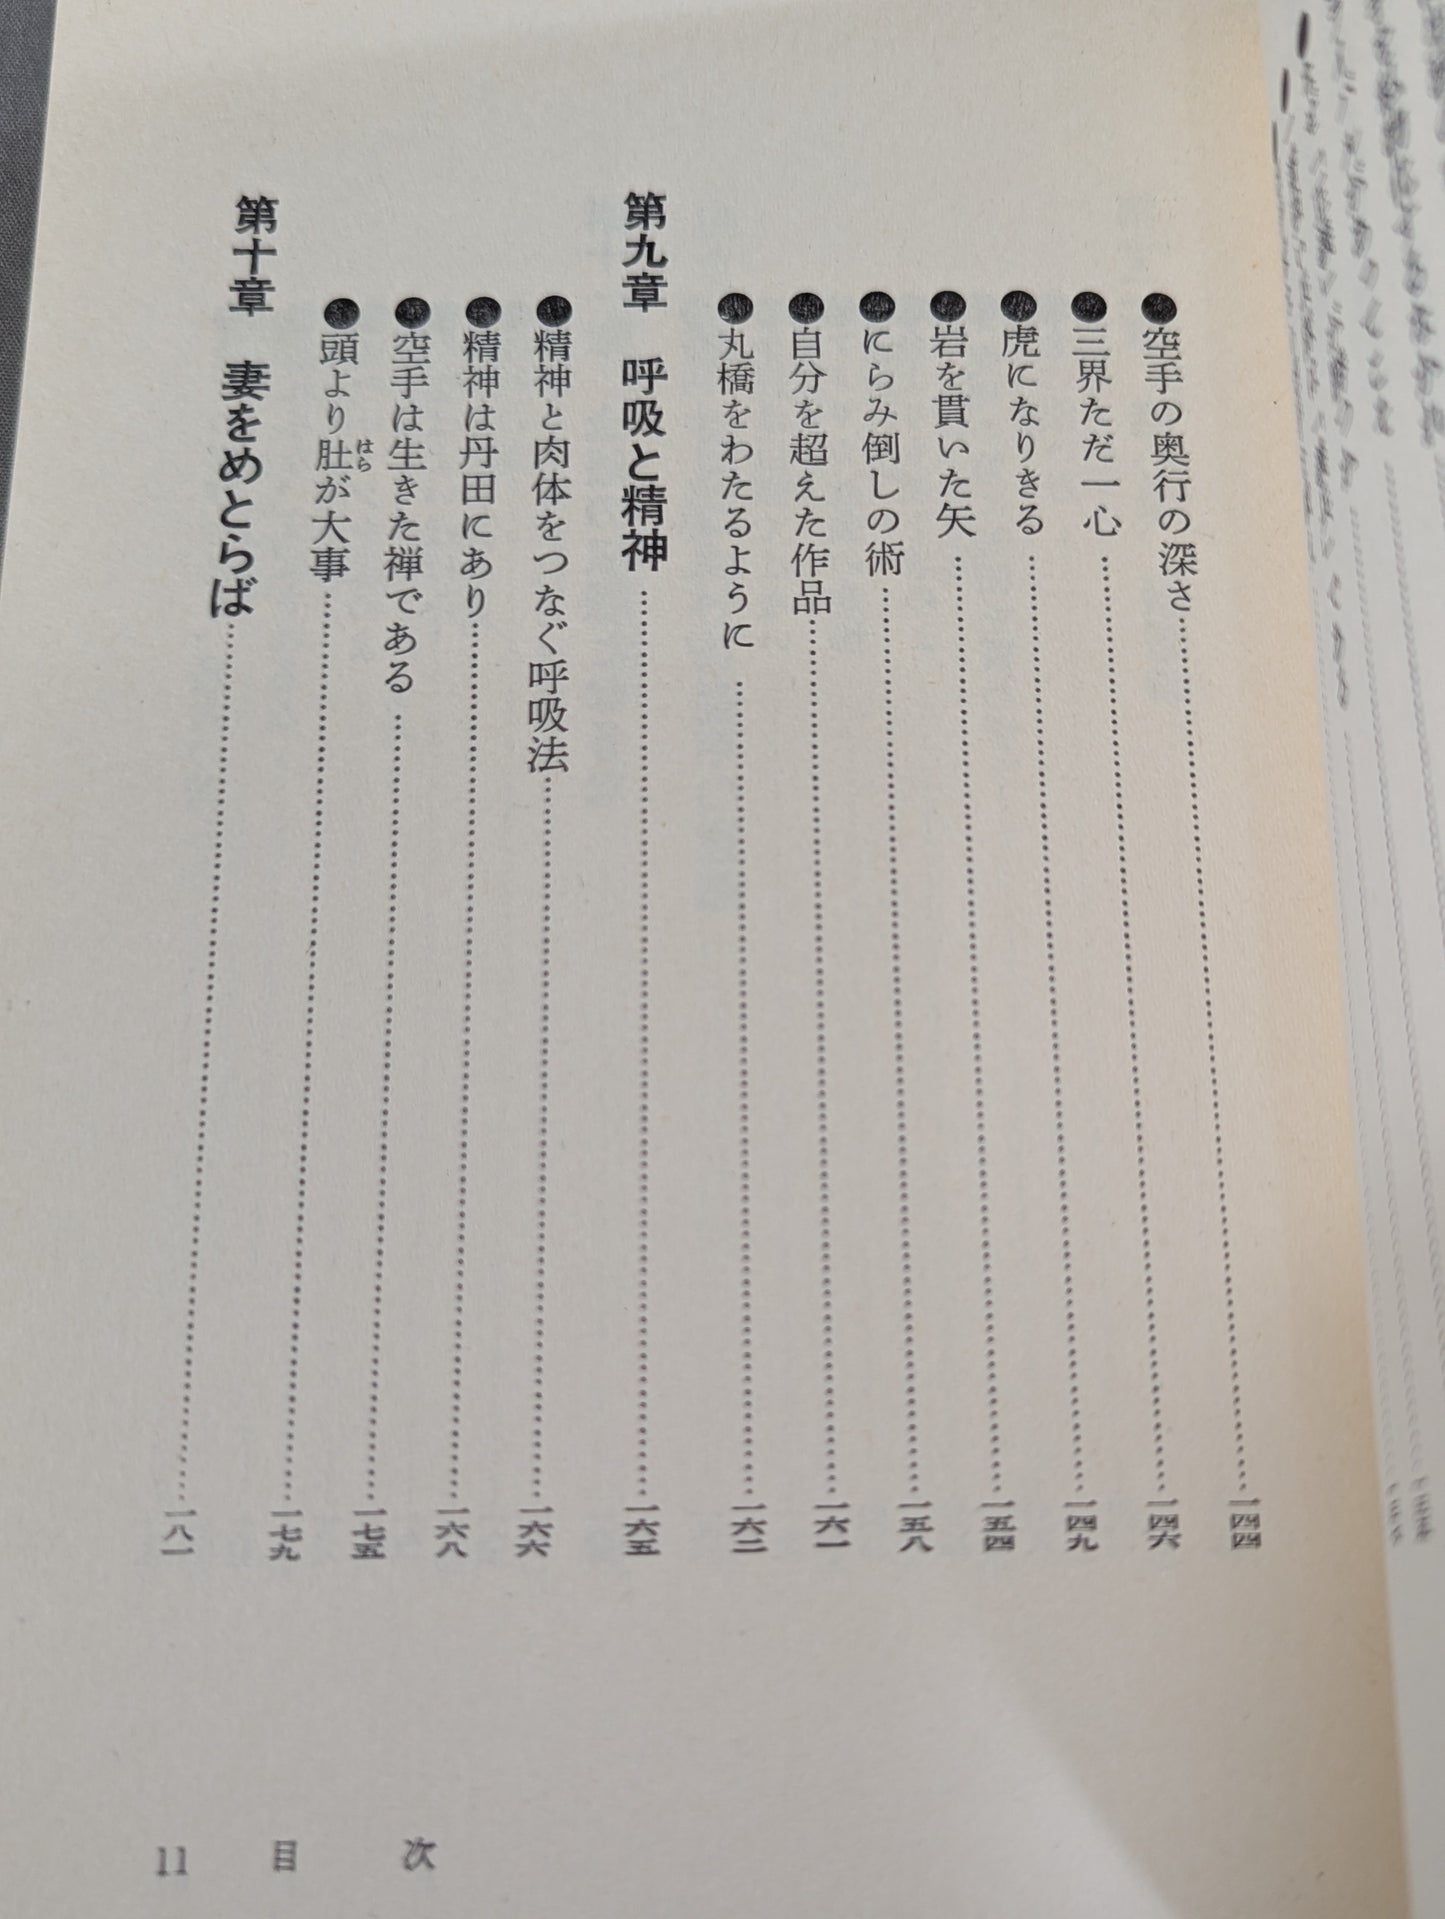 ●空手の奥行の深さ……一四四
●三界ただ一心……一四六
●虎になりきる……一四九
●岩を貫いた矢……一五四
●にらみ倒しの術……一五八
●自分を超えた作品……一六一
●丸橋をわたるように……一六二
第九章 呼吸と精神……一六五
●精神と肉体をつなぐ呼吸法……一六六
●精神は丹田にあり……一六八
●空手は生きた禅である……一七五
●頭より肚が大事……一七九
はら
第十章 妻をめとらば……一八一
11 目次